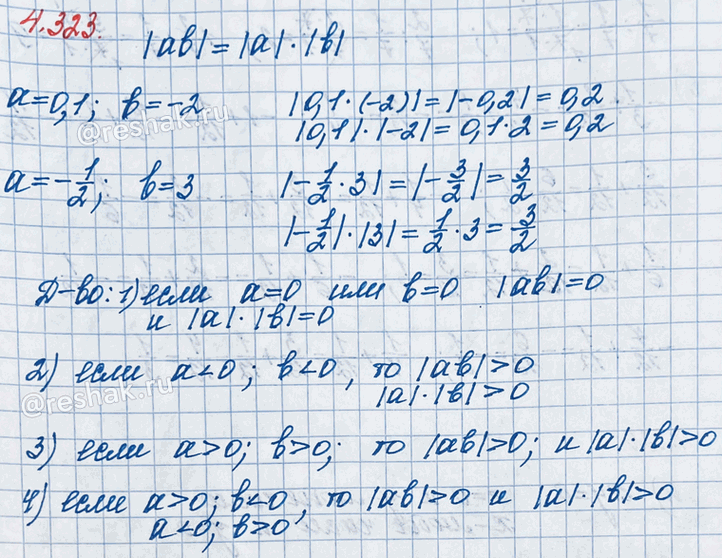 4.323.
|ab| = |a|·|b|
a=0,1; b=-2 |0,1·(-2)| = |-0,2| = 0,2
|0,1|·|-2| = 0,1·2 = 0,2
@reshak.ru
a=-1/2; b=3 |-1/2·3| = |-3/2| = 3/2
|-1/2|·|3| = 1/2·3 = 3/2
Д-во: 1) если a=0 или b=0 |ab|=0
и |a|·|b|=0
2) если a<0; b<0, то |ab|>0
|a|·|b|>0
@reshak.ru
3) если a>0; b>0; то |ab|>0; и |a|·|b|>0
4) если a>0; b<0, то |ab|>0 и |a|·|b|>0
a<0; b>0